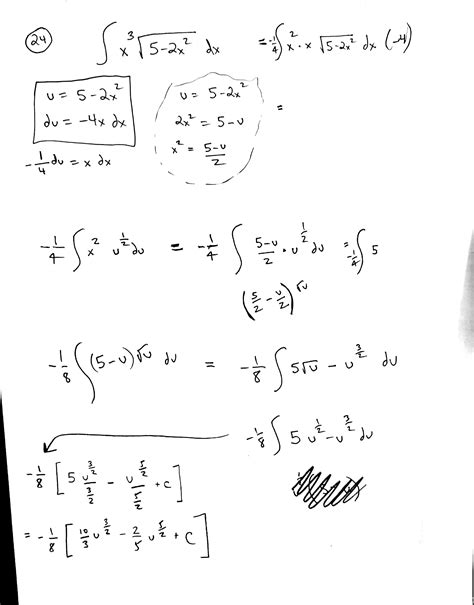 24 ∫ x³ √(5-2x²) dx = -1/4 ∫ x² · x √(5-2x²) dx (-4)
u = 5-2x²
du = -4x dx
-1/4 du = x dx
u = 5-2x²
2x² = 5-u
x² = (5-u)/2
=
-1/4 ∫ x² u^(1/2) du = -1/4 ∫ (5-u)/2 · u^(1/2) du = -1/4 ∫ 5
(5/2 - u/2) √u
-1/8 ∫ (5-u) √u du = -1/8 ∫ 5√u - u^(3/2) du
-1/8 ∫ 5 u^(1/2) - u^(3/2) du
-1/8 [ 5 u^(3/2)/(3/2) - u^(5/2)/(5/2) + C ]
= -1/8 [ 10/3 u^(3/2) - 2/5 u^(5/2) + C ]